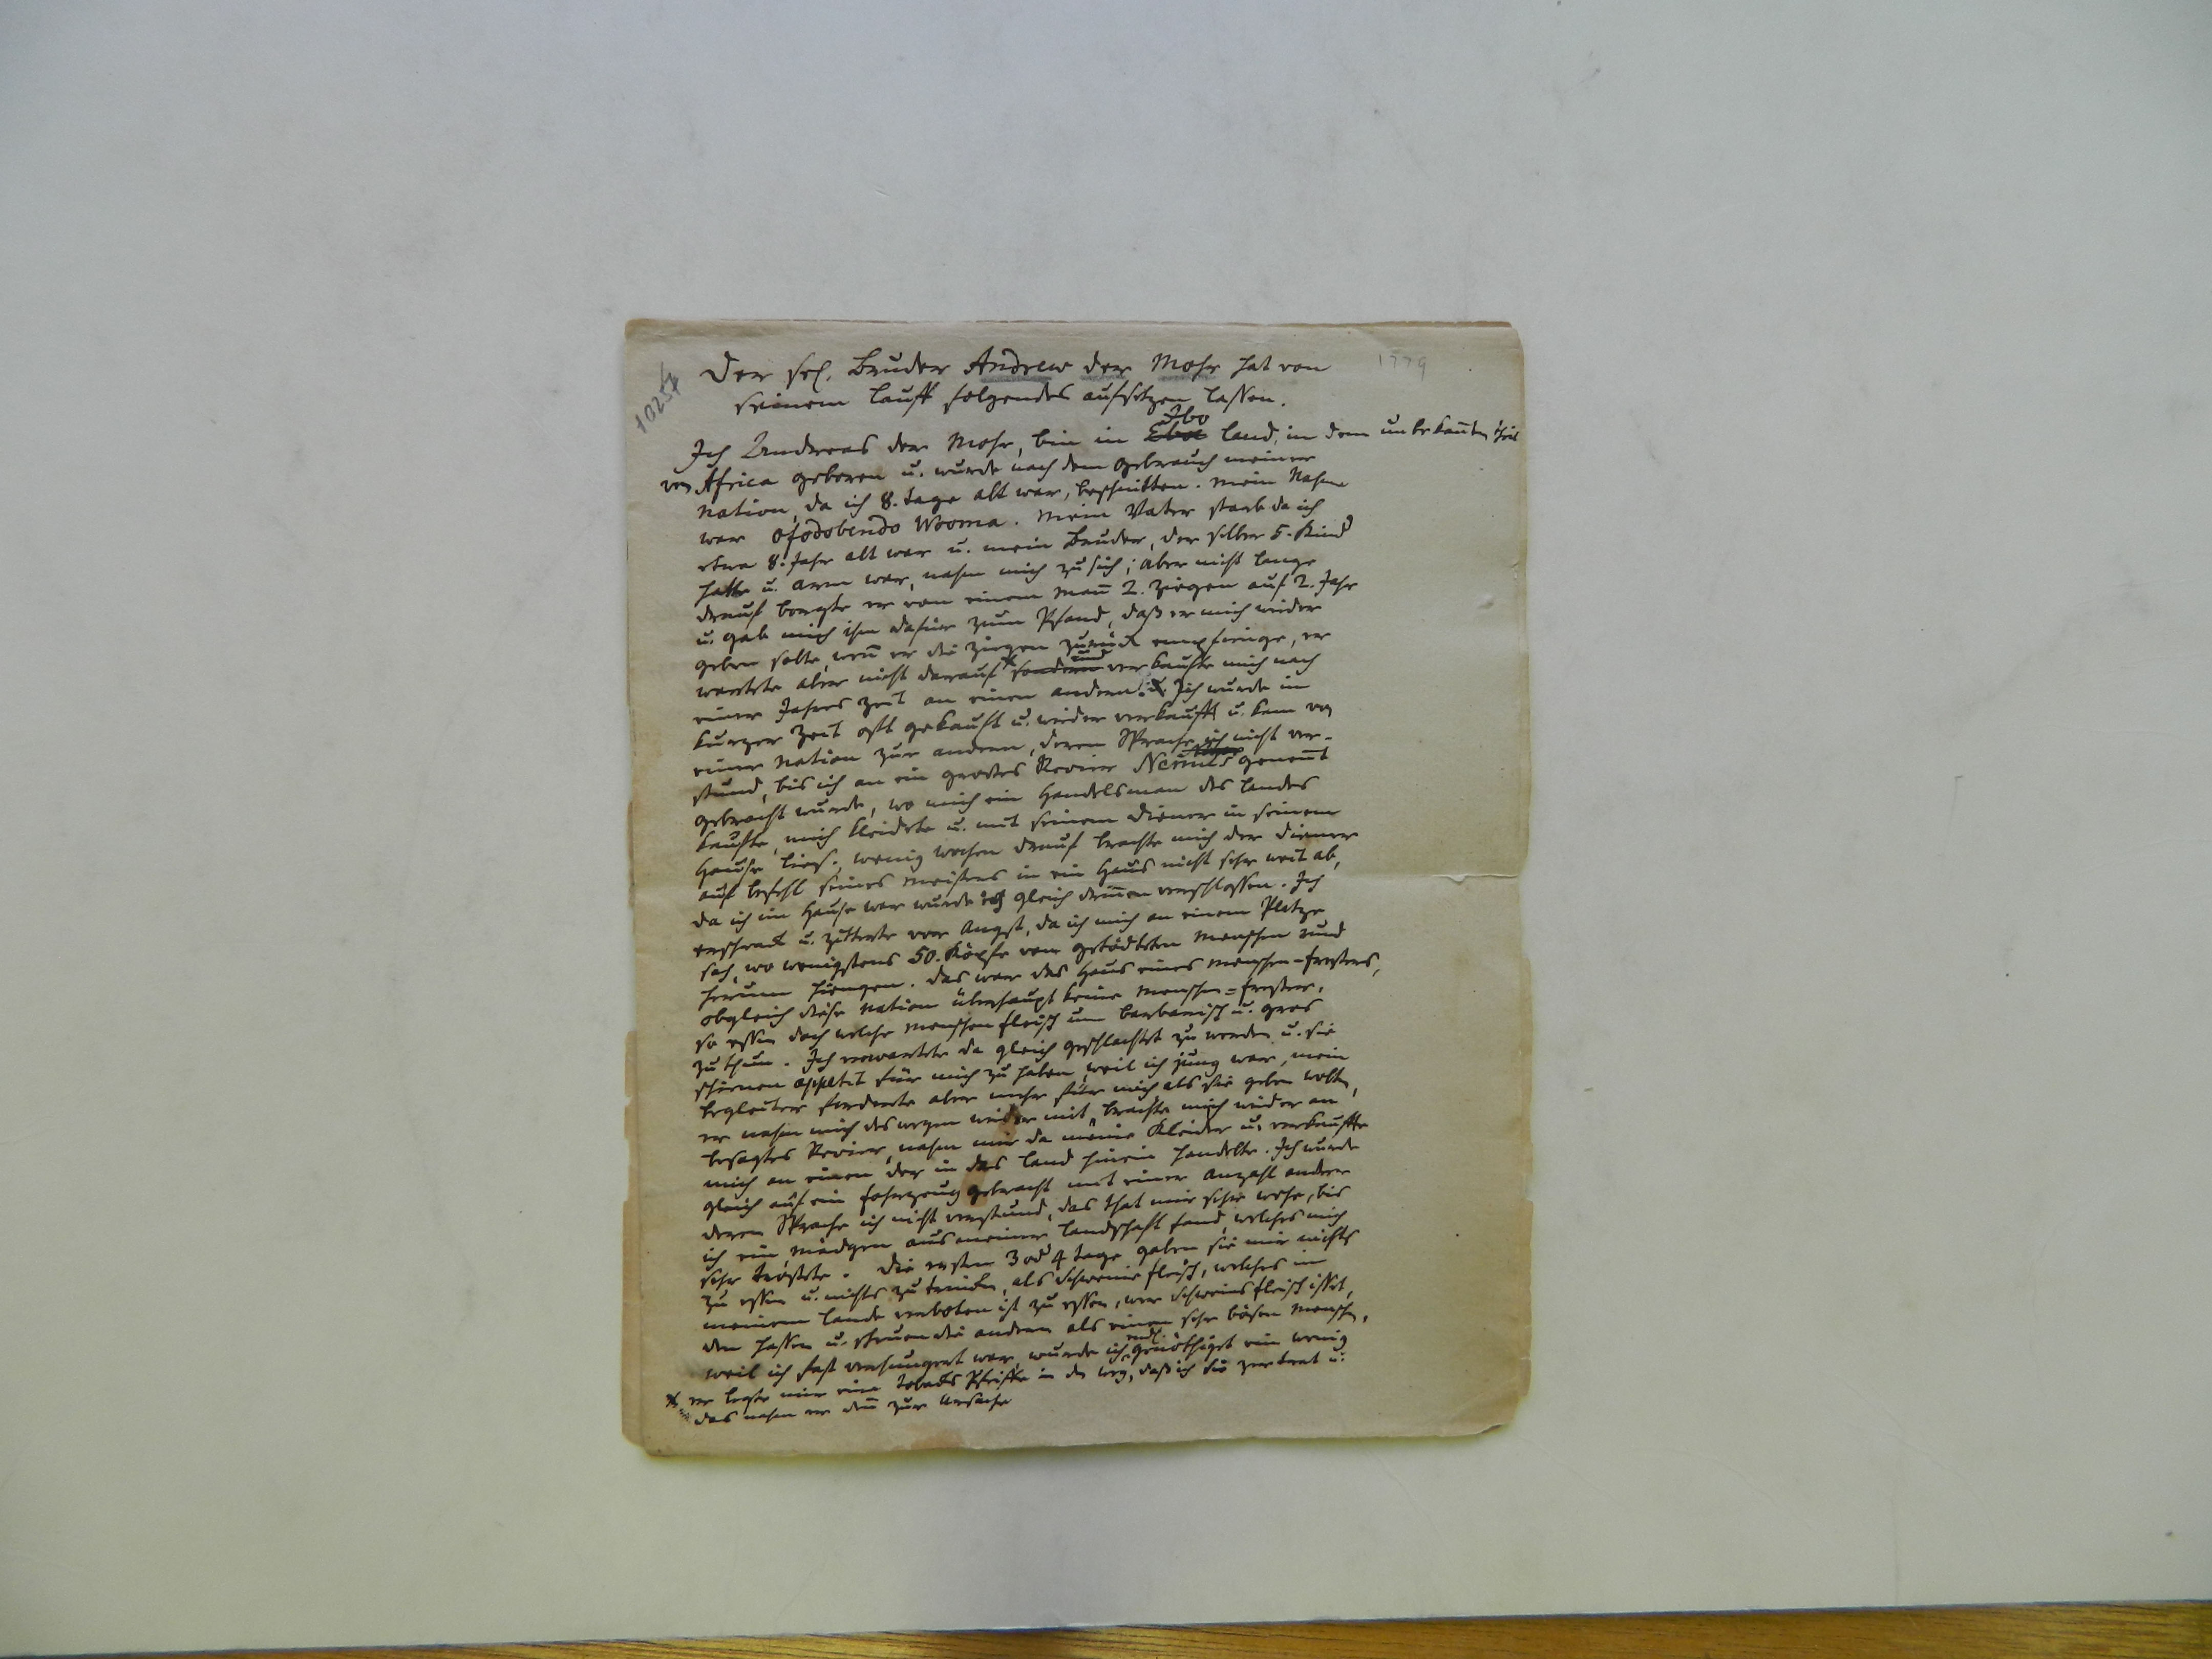 10254
1779
Der sel. Bruder Andrew der Mohr hat von
seinem lauff folgendes aufsetzen lassen.
Ibo
Ich Andreas der Mohr, bin in Eboe land, in dem unbekañten theil
von Africa geboren u. wurde nach dem gebrauch meiner
Nation, da ich 8. tage alt war, beschnitten. mein Nahme
war Ofodobendo Wooma. Mein Vater starb da ich
etwa 8. Jahr alt war u. mein Bruder, der selber 5. Kind
hatte u. arm war, nahm mich zu sich; aber nicht lange
drauf borgte er von einem Mañ 2. Ziegen auf 2. Jahr
u. gab mich ihm dafür zum Pfand, daß er mich wieder
geben solte, weñ er die ziegen zurück empfienge, er
und
wartete aber nicht darauf * sondern verkaufte mich nach
einer Jahres Zeit an einen andern. u. Ich wurde in
kurzer Zeit oft gekauft u. wieder verkaufft u. kam von
einer Nation zur andern, deren Sprache ich nicht ver-
stund, bis ich an ein grosses Revier Nemils geneñt
gebracht wurde, wo mich ein Handelsman des landes
kaufte, mich kleidete u. mit seinem Diener in seinem
Hause lies. wenig wochen drauf brachte mich der diener
auf befehl seines Meisters in ein Haus nicht sehr weit ab,
da ich im Hause war wurde ich gleich driñen verschlossen. Ich
erschrack u. zitterte vor Angst, da ich mich an einem Platze
sah, wo wenigstens 50. Köpfe von getödteten Menschen rund
herum hiengen. das war das Haus eines Menschen-fressers,
obgleich diese Nation überhaupt keine Menschen-fresser,
so essen doch welche Menschenfleisch um barbarisch u. gros
zu thun. Ich erwartete da gleich geschlachtet zu werden u. sie
schienen appetit für mich zu haben, weil ich jung war, mein
begleiter forderte aber mehr für mich als sie geben wolten,
er nahm mich deswegen wieder mit, brachte mich wieder an
besagtes Revier, nahm mir da meine Kleider u. verkauffte
mich an einen der in das land hinein handelte. Ich wurde
gleich auf ein fahrzeug gebracht mit einer Anzahl andere
deren Sprache ich nicht verstund, das that mir sehr wehe, bis
ich ein Mädgen aus meiner landschaft fand, welches mich
sehr tröstete. Die ersten 3 od 4 tage gaben sie mir nichts
zu essen u. nichts zu trinken, als Schweinefleisch, welches in
meinem lande verboten ist zu essen, wer Schweinsfleisch isset,
den hassen u. scheuen die andern als einen sehr bösen Menschen,
endl.
weil ich fast verhungert war, wurde ich genöthiget ein wenig
* er legte mir eine tobacks Pfeiffe in den weg, daß ich sie zertrat u.
das nahm er deñ zur Ursache